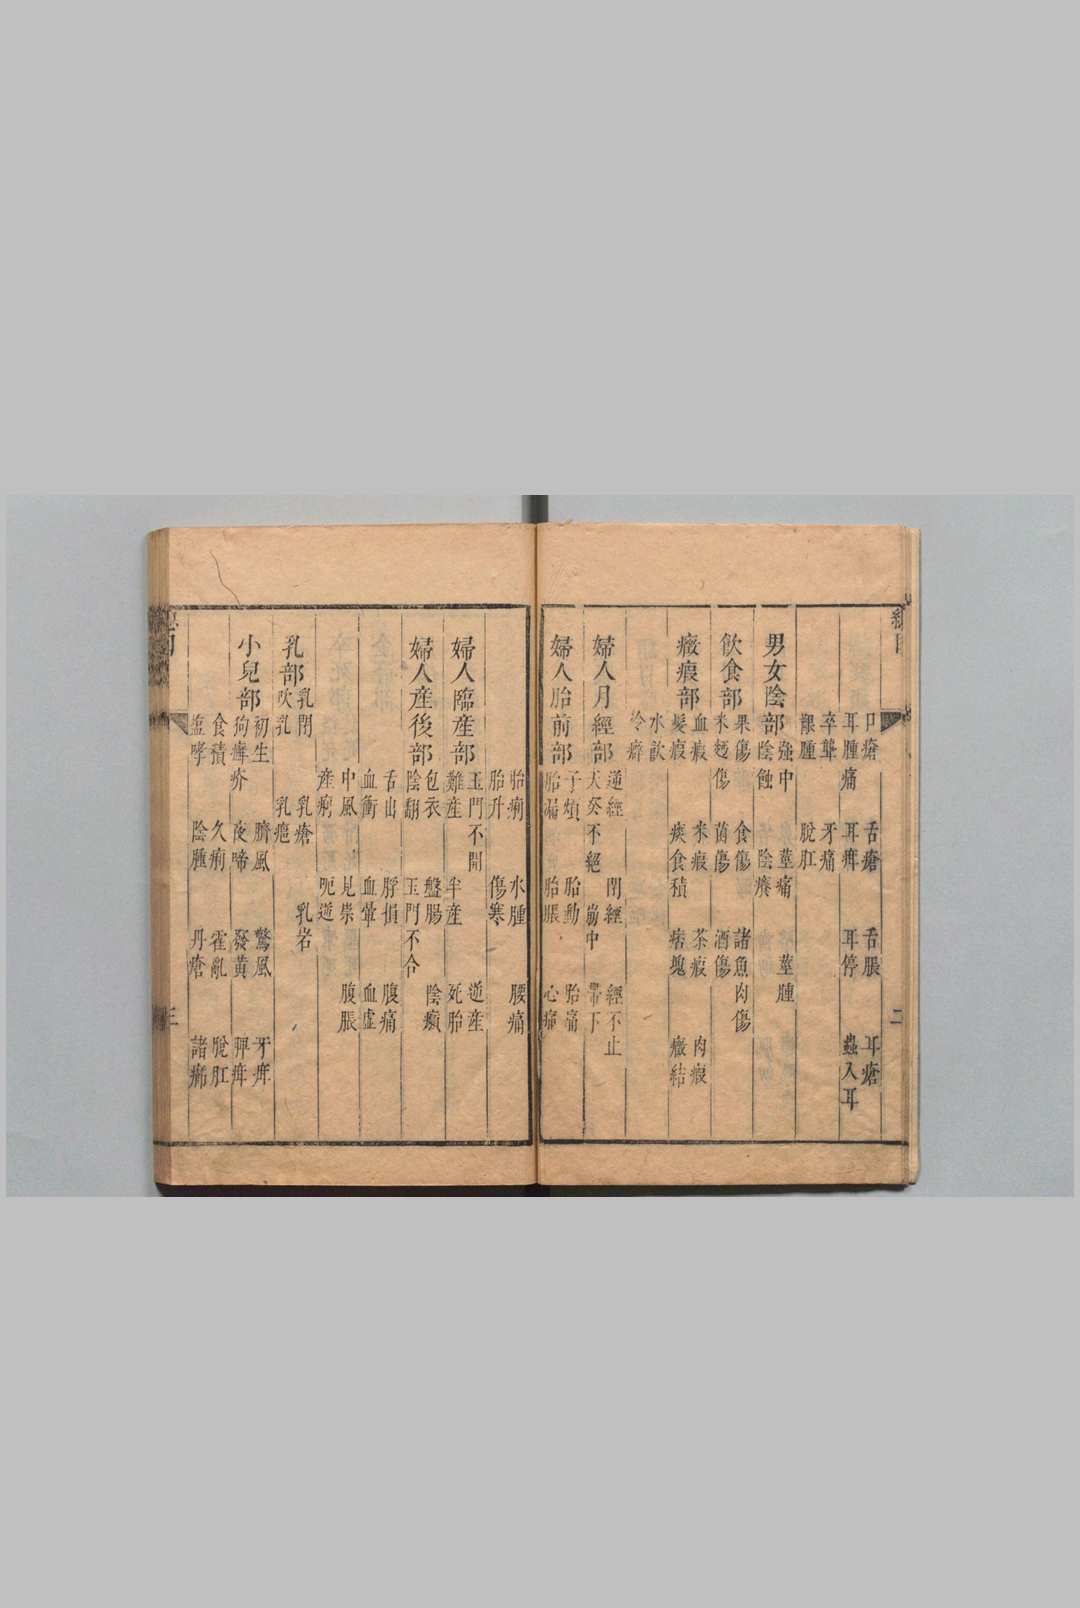 口瘡 舌瘡 舌脹 耳瘡
耳腫痛 耳痺 耳停 蟲入耳
卒聾 牙痛
齦腫 脫肛
男女陰部 強中 莖痛 莖腫
陰蝕 陰癢
飲食部 果傷 食傷 諸魚肉傷
米麵傷 菌傷 酒傷
癥瘕部 血瘕 米瘕 茶瘕 肉瘕
髮瘕 痰食積 痞塊 癥結
水飲
冷癖
婦人月經部 逆經 閉經 經不止
天癸不絕 崩中 帶下
婦人胎前部 子煩 胎動 胎痛
胎漏 胎脹 心痛
胎痢 水腫 腰痛
胎升 傷寒
婦人臨產部 玉門不開 逆產
難產 半產 死胎
婦人產後部 包衣 盤腸 陰㿗
陰翻 玉門不合
舌出 脬損 腹痛
血衝 血暈 血虛
中風 見祟 腹脹
產癆 呃逆
乳部 乳閉 乳瘡 乳岩
吹乳 乳癌
小兒部 初生 臍風 驚風 牙疳
狗癬疥 夜啼 發黃 脾疳
食積 久痢 霍亂 脫肛
鹽哮 陰腫 丹瘡 諸癤
總目
二
三